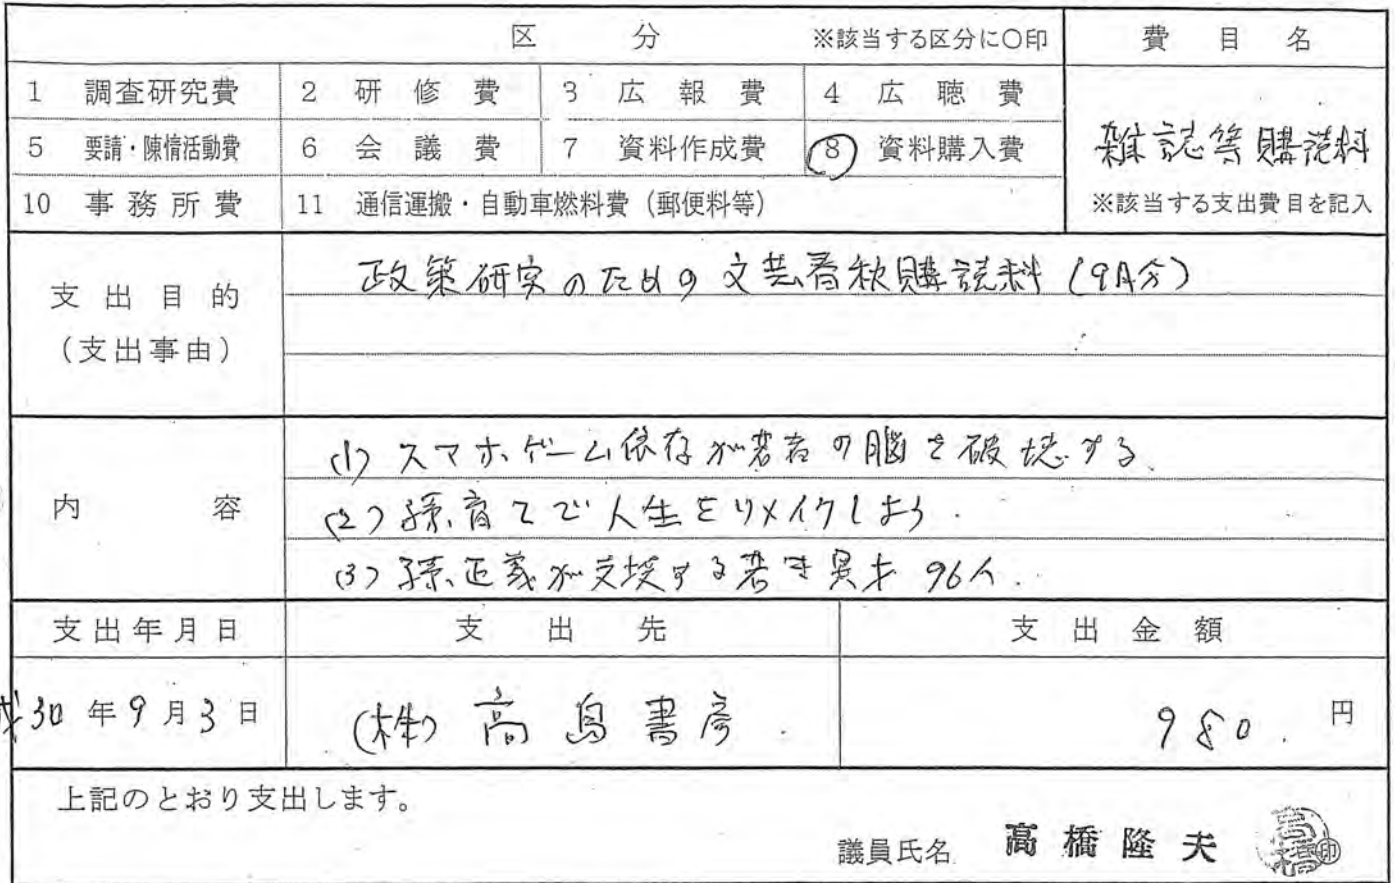 区 分 ※該当する区分に○印 費 目 名
1 調査研究費 2 研 修 費 3 広 報 費 4 広 聴 費
5 要請・陳情活動費 6 会 議 費 7 資料作成費 ⑧ 資料購入費
雑誌等購読料
10 事務所費 11 通信運搬・自動車燃料費（郵便料等）
※該当する支出費目を記入
支出目的
（支出事由）
政策研究のための文芸春秋購読料（9月分）
内 容
(1) スマホ、ゲーム依存が若者の脳を破壊する
(2) 孫育てで人生をリメイクしよう.
(3) 孫正義が支援する若き異才 96人.
支出年月日 支 出 先 支 出 金 額
30 年 9 月 3 日 (株) 高島書房 980. 円
上記のとおり支出します。
議員氏名 高橋隆夫 印